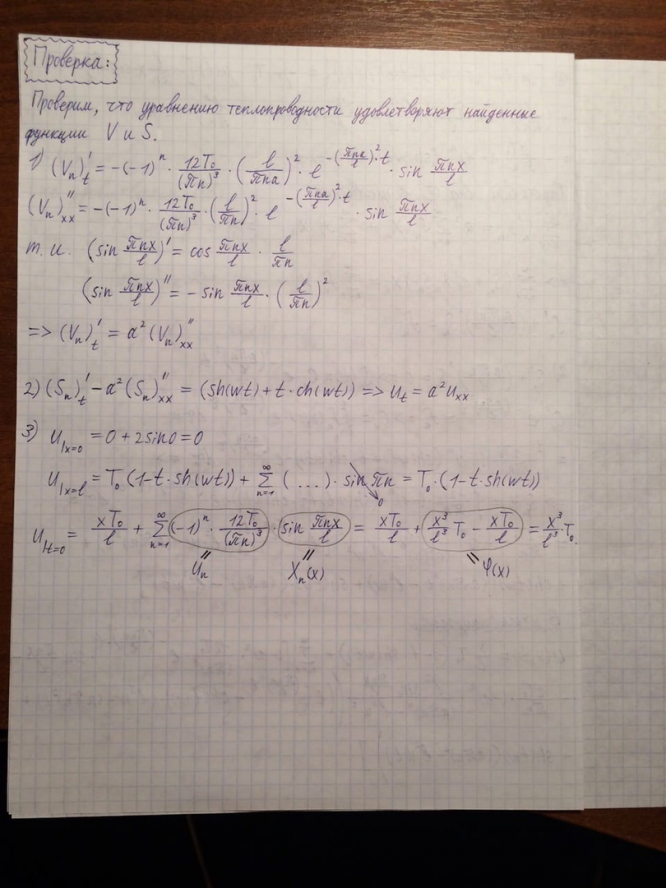 Проверка:
Проверим, что уравнению теплопроводности удовлетворяют найденные
функции V и S.
1) (Vₙ)'ₜ = -(-1)ⁿ · 12T₀/(πn)³ · (l/πna)² · e^(-(πna/l)²·t) · sin πnx/l
(Vₙ)''ₓₓ = -(-1)ⁿ · 12T₀/(πn)³ · (l/πn)² · e^(-(πna/l)²·t) · sin πnx/l
т.к. (sin πnx/l)' = cos πnx/l · l/πn
(sin πnx/l)'' = -sin πnx/l · (l/πn)²
=> (Vₙ)'ₜ = a²(Vₙ)''ₓₓ
2) (Sₙ)'ₜ - a²(Sₙ)''ₓₓ = (sh(wt) + t·ch(wt)) => uₜ = a²uₓₓ
3) u|ₓ₌₀ = 0 + 2sin0 = 0
u|ₓ₌ₗ = T₀(1-t·sh(wt)) + ∑ₙ₌₁^∞ (...)·sin πn = T₀·(1-t·sh(wt))
0
u|ₜ₌₀ = xT₀/l + ∑ₙ₌₁^∞ (-1)ⁿ · 12T₀/(πn)³ · sin πnx/l = xT₀/l + x³/l³ T₀ - xT₀/l = x³/l³ · T₀.
= = =
uₙ Xₙ(x) φ(x)